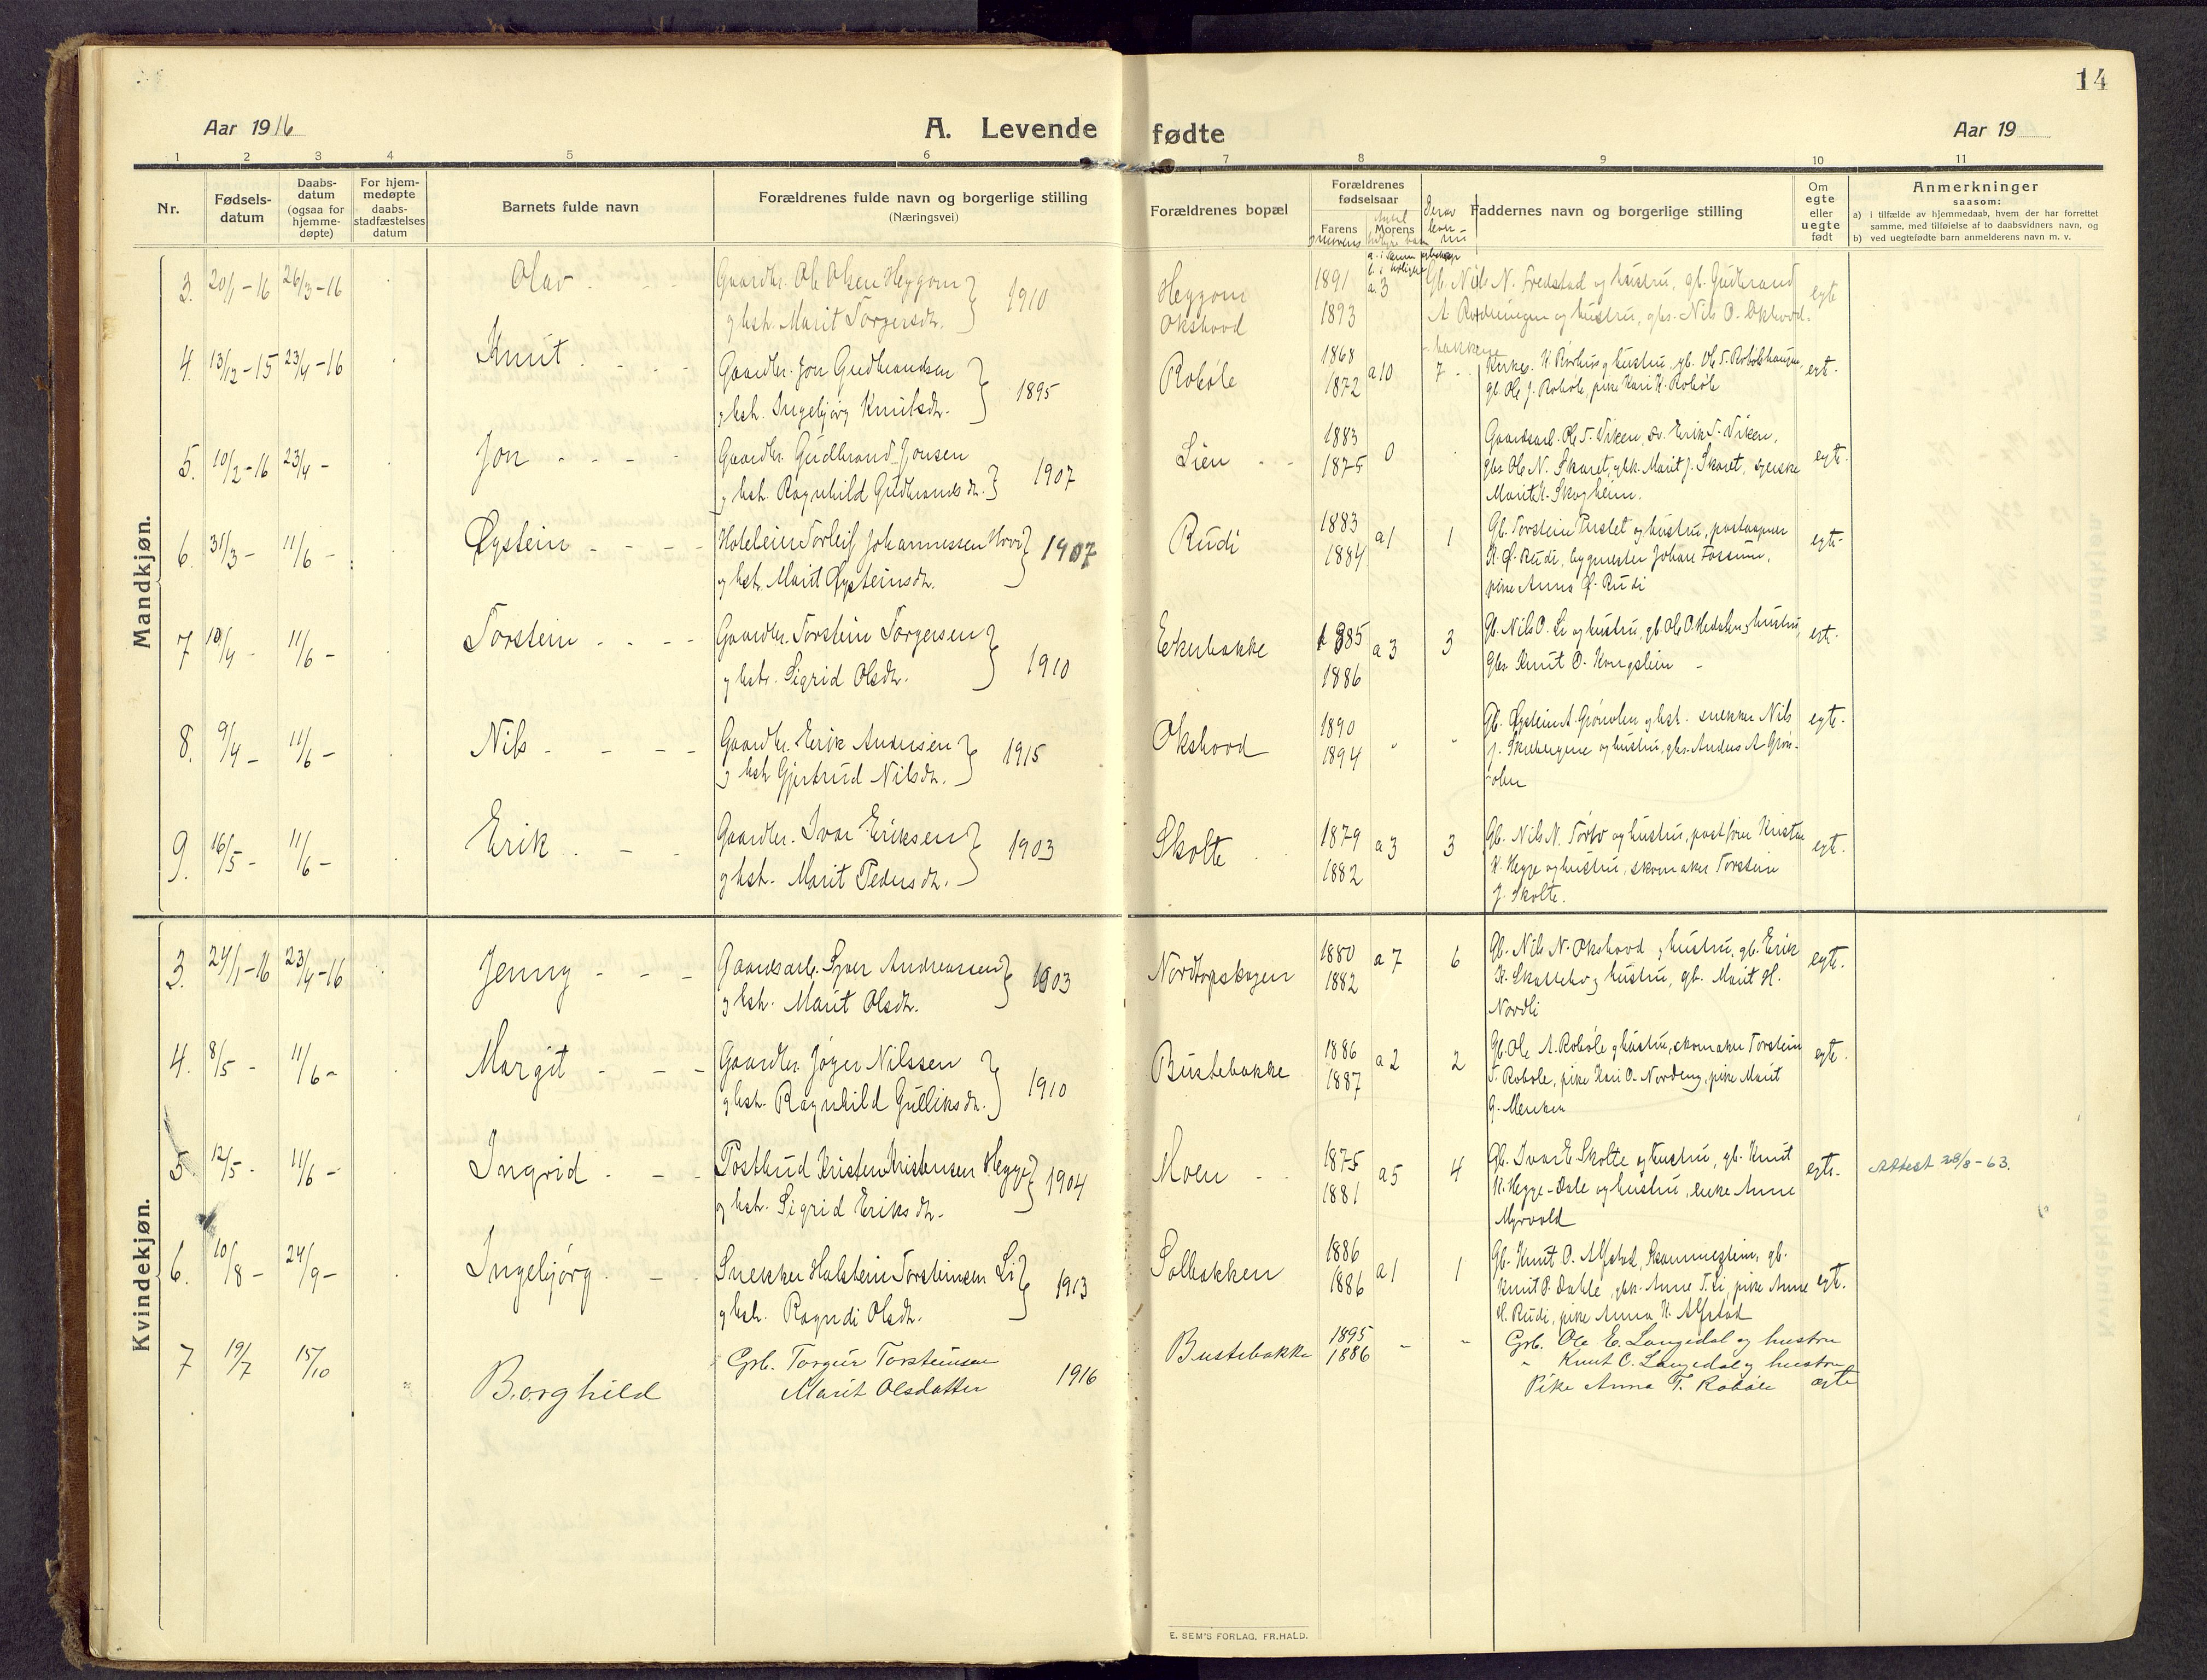 14
Aar 1916
A. Levende fødte
Aar 19
1 2 3 4 5 6 7 8 9 10 11
Nr.
Fødsels-
datum
Daabs-
datum
(ogsaa for
hjemme-
døpte)
For hjem-
medøpte
daabs-
stadfæstelses
datum
Barnets fulde navn
Forældrenes fulde navn og borgerlige stilling
(Næringsvei)
Forældrenes bopæl
Forældrenes
fødselsaar
Farens
Morens
Faddernes navn og borgerlige stilling
Om
egte
eller
uegte
født
Anmerkninger
saasom:
a) i tilfælde av hjemmedaab, hvem der har forrettet
samme, med tilføielse af to daabsvidners navn, og
b) ved uegtefødte barn anmelderens navn m. v.
Mandkjøn.
3. 20/1-16 26/3-16 Olav Gaardbr. Ole Olsen Heggom
og hst. Marit Torgersdtr. 1910
Heggom
Okshovd
1891
1893
a.3
Gb. Nils N. Fredstad og hustru, gb. Gudbrand
og hustru, gbs. Nils O. Okshovd-
bakken
egte
4. 13/12-15 23/4-16 Knut Gaardbr. Jon Gudbrandsen
og hst. Ingebjørg Knutsdtr. 1895
Robøle
1868
1872
a10 7
Kirkes. K. Rørhus og hustru, gb. Ole T. Robølshaugen,
gb. Ole J. Robøle, pike Kari K. Robøle
egt.
5. 10/2-16 23/4- Jon Gaardbr. Gudbrand Jonsen
og hst. Ragnhild Gudbrandsdtr. 1907
Lien
1883
1875
0
Gaardsarb. Ole T. Viken, Erik T. Viken,
gbs. Ole N. Skaret, gbk. Marit J. Skaret, syerske
Marit K. Skogheim.
egte.
6. 31/3- 11/6- Øystein Torleif Johannessen Hovi
og hst. Marit Øysteinsdtr. 1907
Rudi
1883
1884
a1 1
Gb. Torstein og hustru, postaapner
K. Ø. Rudi, bygmester Johan Fossum,
pike Anna Ø. Rudi
egte-
7 10/4- 11/6- Torstein Gaardbr. Torstein Torgersen
og hst. Sigrid Olsdtr. 1910
Ekerbakke
1885
1886
a3 3
Gb. Nils O. Li og hustru, gb. Ole O. Hedalen og hustru,
gbs Knut O. Kongslien
egte.
8. 9/4- 11/6- Nils Gaardbr. Erik Andersen
og hst. Gjertrud Nilsdtr. 1915
Okshovd
1890
1894
" "
Gb. Øystein A. Grønolen og hst. snekker Nils
J. og hustru, gbs. Anders A. Grøn-
olen
egte.
9. 16/5- 11/6- Erik Gaardbr. Ivar Eriksen
og hst. Marit Pedersdtr. 1903
Skolte
1879
1882
a3 3
Gb. Nils N. Tørbo og hustru, postfører Kristen
K. Hegge og hustru, skomaker Torstein
J. Skolte.
egte.
Kvindekjøn.
3. 24/1-16 23/4-16 Jenny Gaardsarb. Syver Andreassen
og hst. Marit Olsdtr. 1903
Nordtorpskogen
1880
1882
a7 6
Gb. Nils N. Okshovd og hustru, gb. Erik
K. Skattebo og hustru, gb. Marit H.
Nordli
egte.
4. 8/5- 11/6- Margit Gaardbr. Jøger Nilssen
og hst. Ragnhild Gulliksdtr. 1910
Bustebakke
1886
1887
a2 2
Gb. Ole A. Robøle og hustru, skomaker Torstein
T. Robøle, pike Kari O. Nordeng, pike Marit
G. Menken
egte.
5 12/5- 11/6- Ingrid Postbud Kristen Kristensen Hegge
og hst. Sigrid Eriksdtr. 1904
Moen
1875
1881
a5 4
Gb. Ivar E. Skolte og hustru, gb. Knut
K. Hegge-Dale og hustru, enke Anne
Myrvold
egte-
Attest 28/8-63.
6. 10/8- 24/9- Ingebjørg Snekker Halstein Torsteinsen Li
og hst. Ragndi Olsdtr. 1913
Solbakken
1886
1886
a1 1
Gb. Knut O. Alfstad, gb.
Knut P. Dahle, gbk. Anne T. Li, pike Anne
H. Rudi, pike Anna K. Alfstad
egt.
7 19/7 15/10 Borghild Grb. Torgeir Torsteinsen
Marit Olsdatter 1916
Bustebakke
1895
1886
- "
Grb. Ole E. Langedal og hustru
" Knut C. Langedal og hustru
Pike Anna T. Robøle
egte
E. SEM'S FORLAG, FR.HALD.